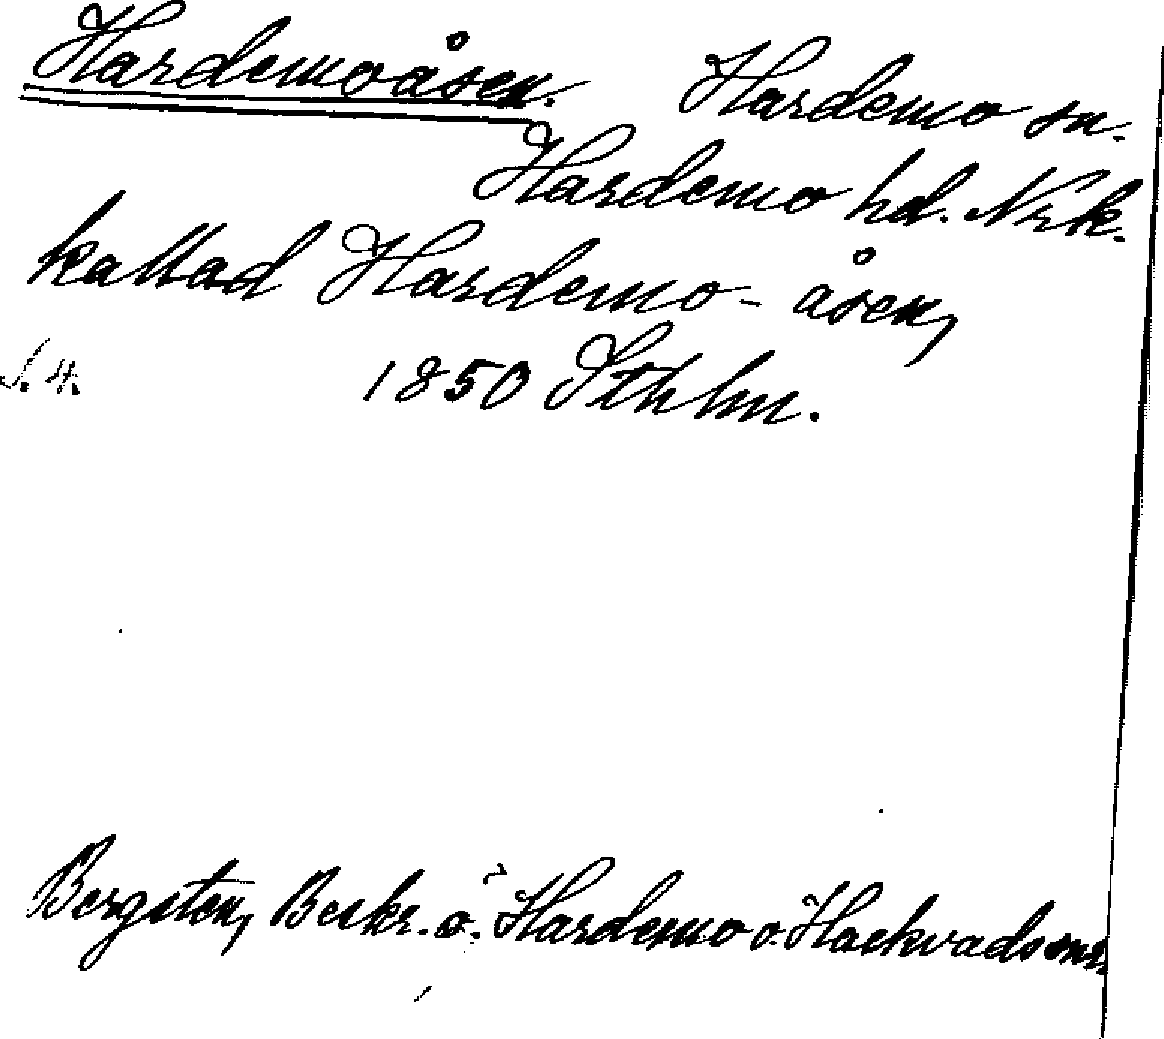 Hardemoåsen. Hardemo sn.
Hardemo hd. Nrk.
kallad Hardemo-åsen,
S. 4. 1850 Sthlm.
Bergsten, Beskr. ö. Hardemo o. Hackvads snr.